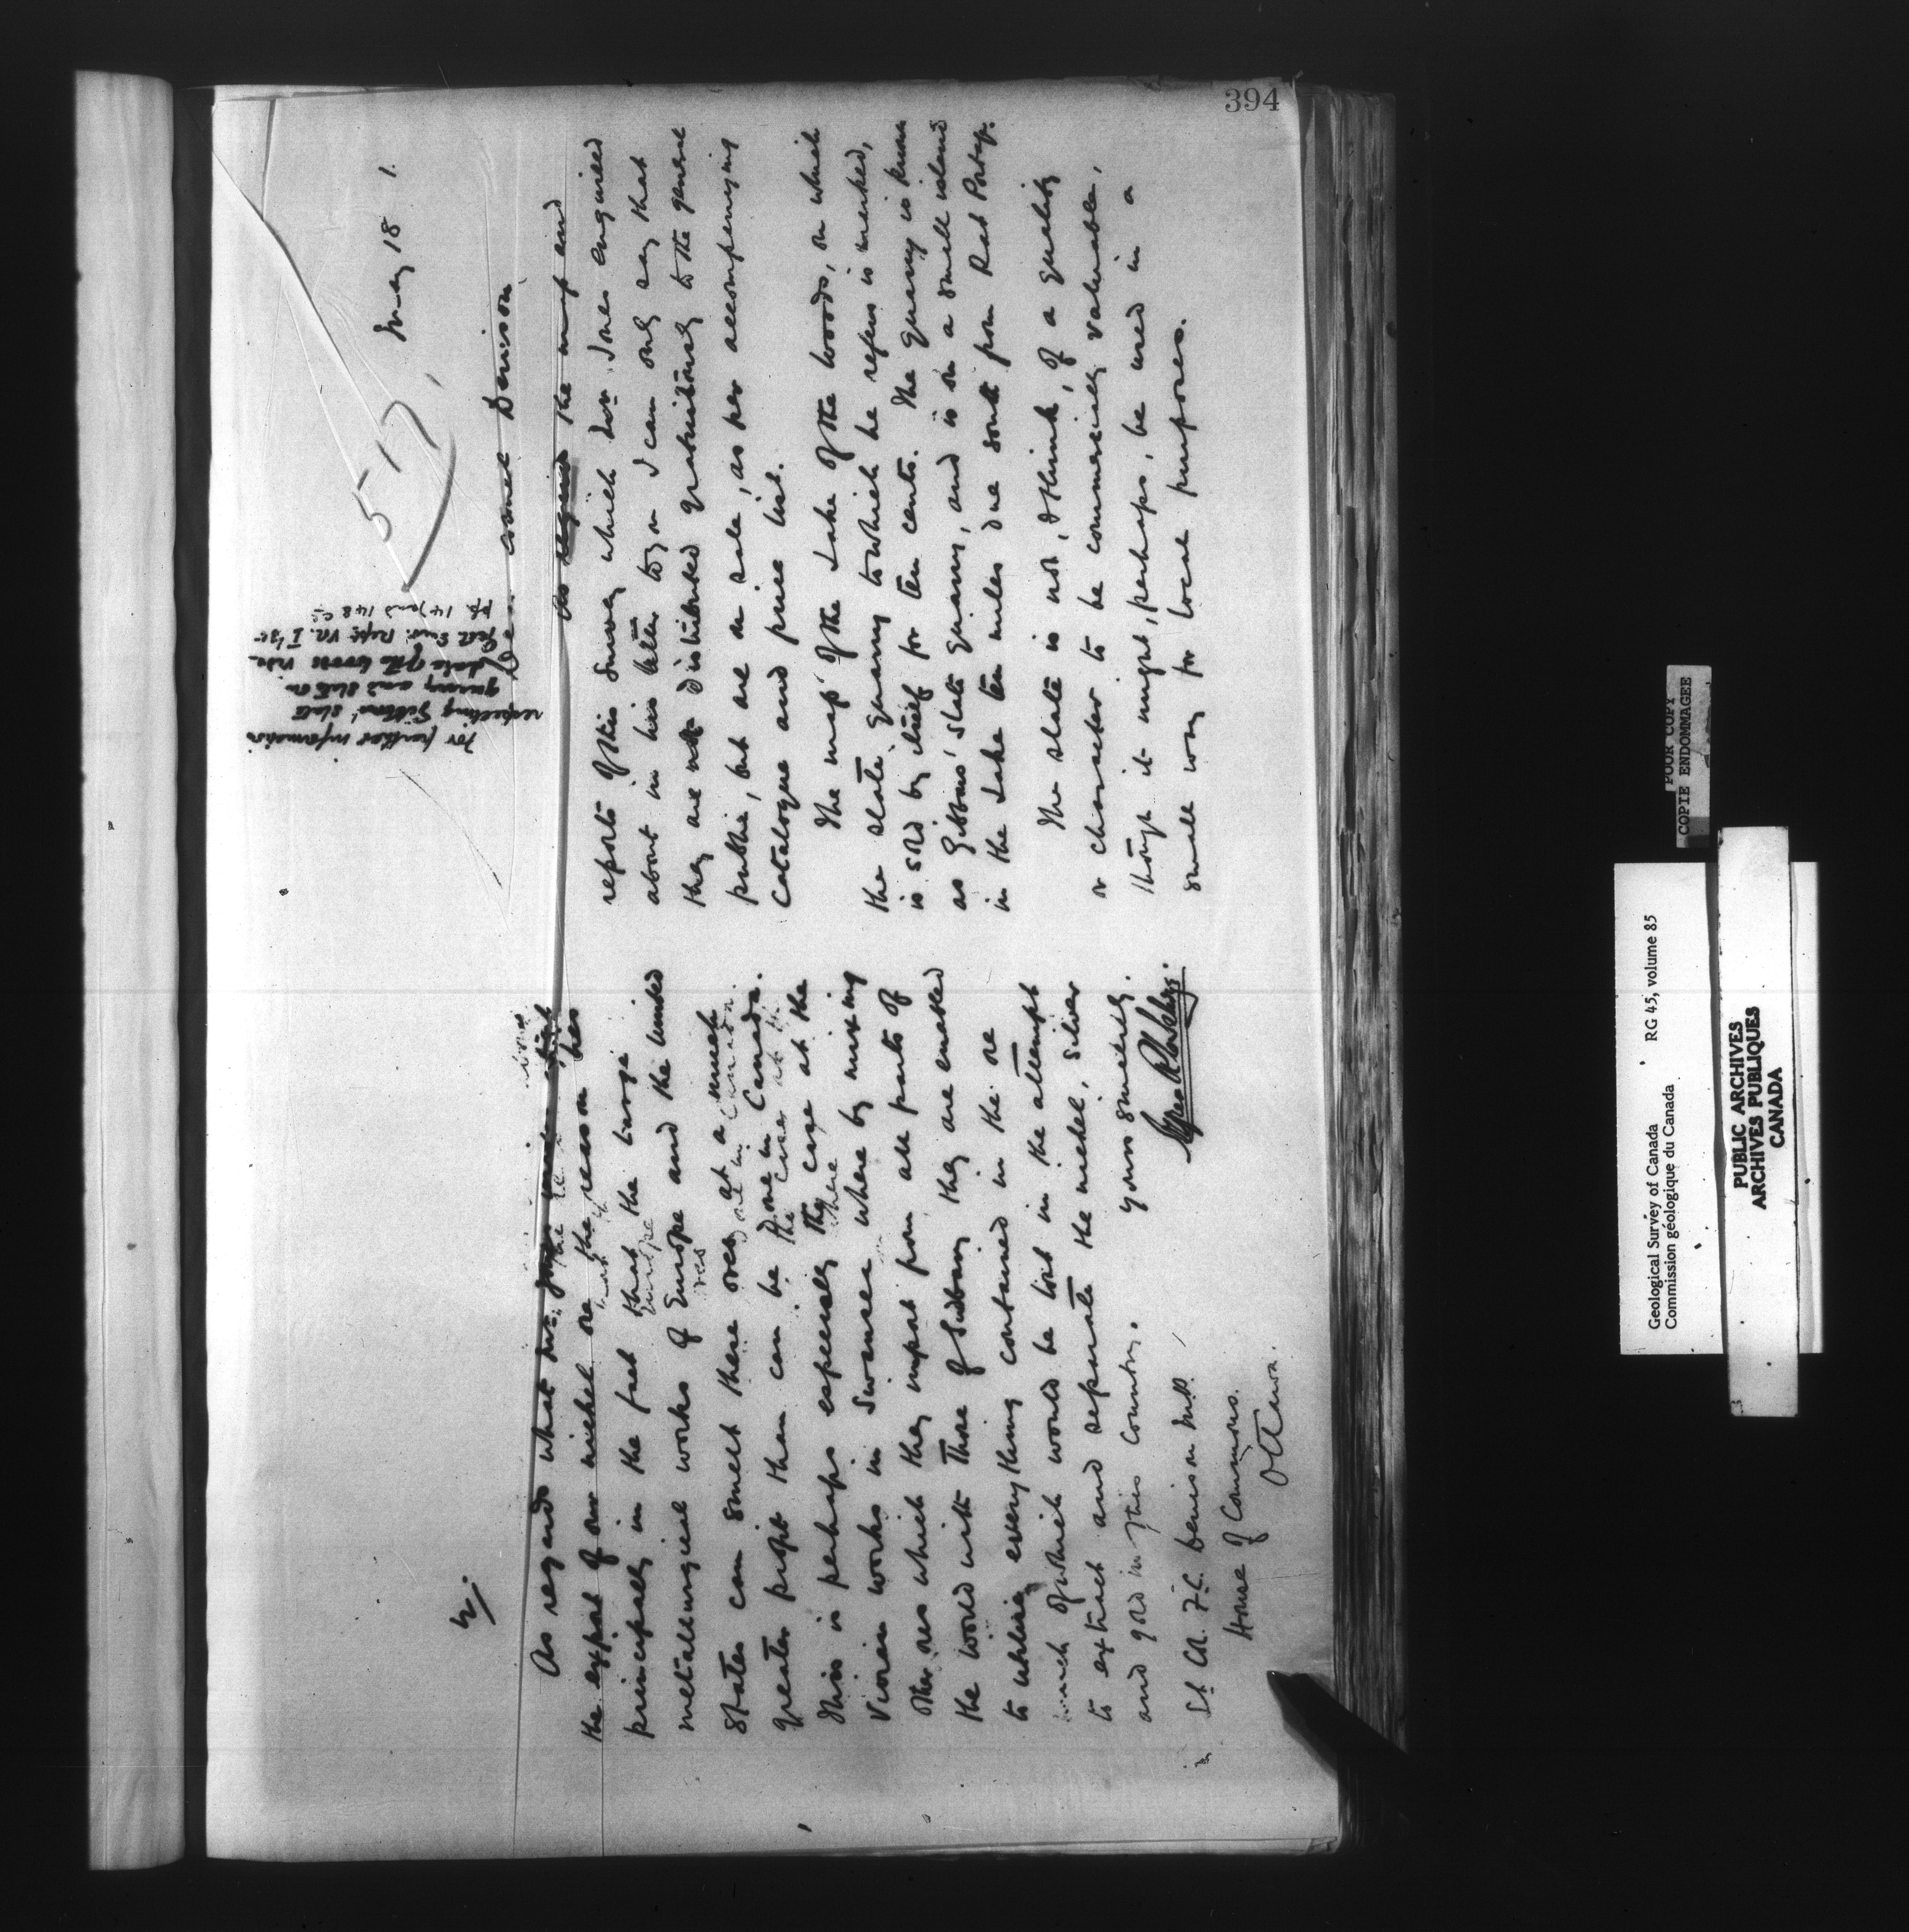 394
517
May 18 1.
Dear Colonel Denison
As regards the map and
reports of this Survey which Mr. Jones enquired
about in his letter to you I can only say that
they are not distributed gratuitously to the general
public, but are on sale, as per accompanying
catalogue and price list.
The map of the Lake of the Woods, on which
the slate quarry to which he refers is marked,
is sold by itself for ten cents. The quarry is known
as Gibbons' slate quarry, and is on a small island
in the Lake ten miles due south from Rat Portage.
The slate is not, I think, of a quality
or character to be commercially valuable,
though it might, perhaps, be used in a
small way for local purposes.
For further information
respecting Gibbons' slate
quarry and slate on
Lake of the Woods vide
Geol. Surv. Rept. Vol. I
pp. 147 and 148 CC
2/.
As regards what Mr. Jones
the export of our nickel ore the reason lies
principally in the fact that the large
metallurgical works of Europe and the United
States can smelt these ores at a much
greater profit than can be done in Canada.
This is perhaps especially the case at the
Vivian works in Swansea where by mixing
other ores which they import from all parts of
the world with those of Sudbury they are enabled
to utilise everything contained in the ore
much of which would be lost in the attempt
to extract and separate the nickel, silver
and gold in this country.
Yours sincerely.
Lt Col. F.C. Denison M.P.
House of Commons.
Ottawa.
POOR COPY
COPIE ENDOMMAGEE
Geological Survey of Canada RG 45, volume 85
Commission géologique du Canada
PUBLIC ARCHIVES
ARCHIVES PUBLIQUES
CANADA